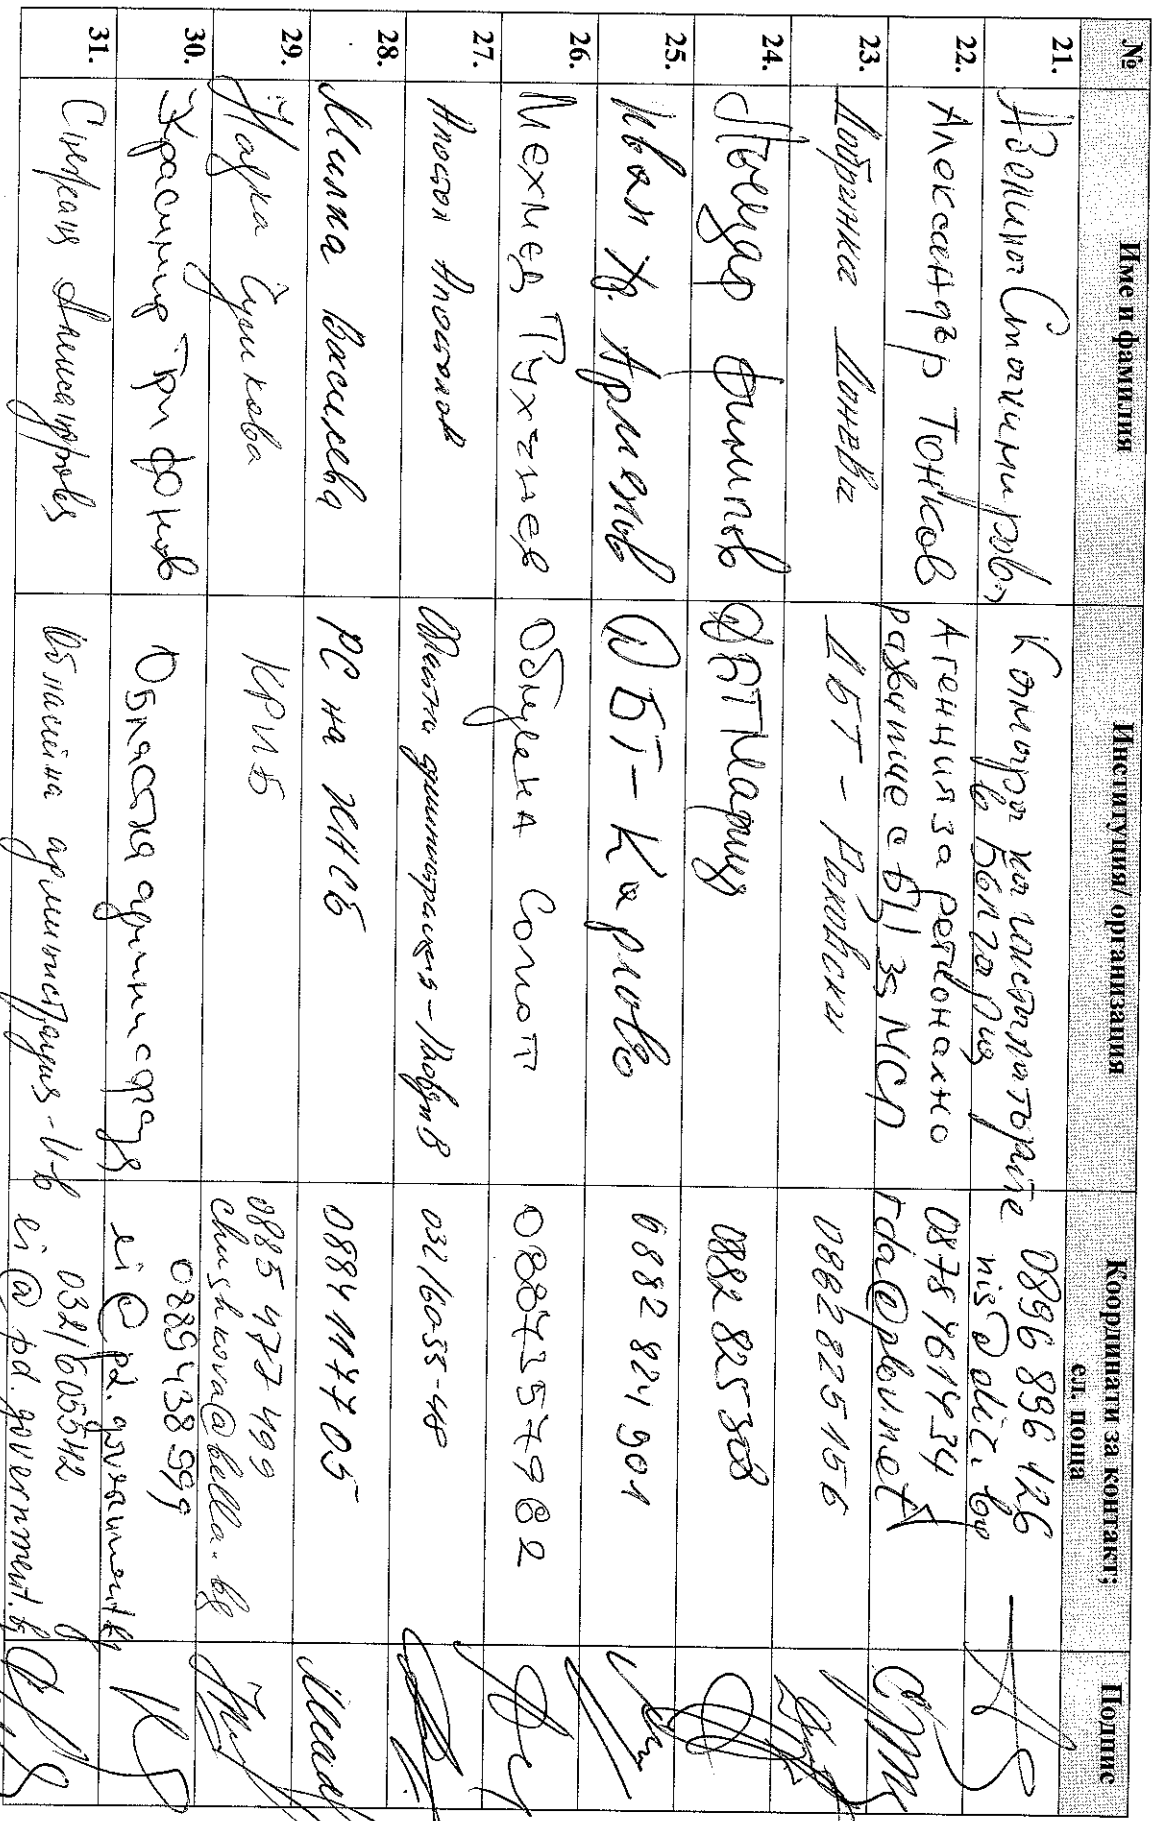 № Име и фамилия Институция/ организация Координати за контакт; ел. поща Подпис
21. Авелина Стоимирова Камара на инсталаторите в България 0896 896 426
22. Александър Тонков Агенция за регионално развитие с БЦ за МСП 0878 461434 rda@plovdiv.net
23. Добринка Донева ДБТ - Раковски 0882825156
24. Лъчезар Филипов ДБТ Марица 0882 825308
25. Иван Хр. Арменов ДБТ - Карлово 0882 824 901
26. Мехмед Пухчиев Община Сопот 0887357982
27. Апостол Апостолов Областна администрация - Пловдив 032/6055-48
28. Милка Василева РС на КНСБ 0884117705
29. Надка Чушкова КРИБ 0885 477 499 chushkova@bella.bg
30. Красимир Трифонов Областна администрация 0889 438 999 ei@pd.government.bg
31. Снежана Александрова Областна администрация - П-в 032/605542 ei@pd.government.bg